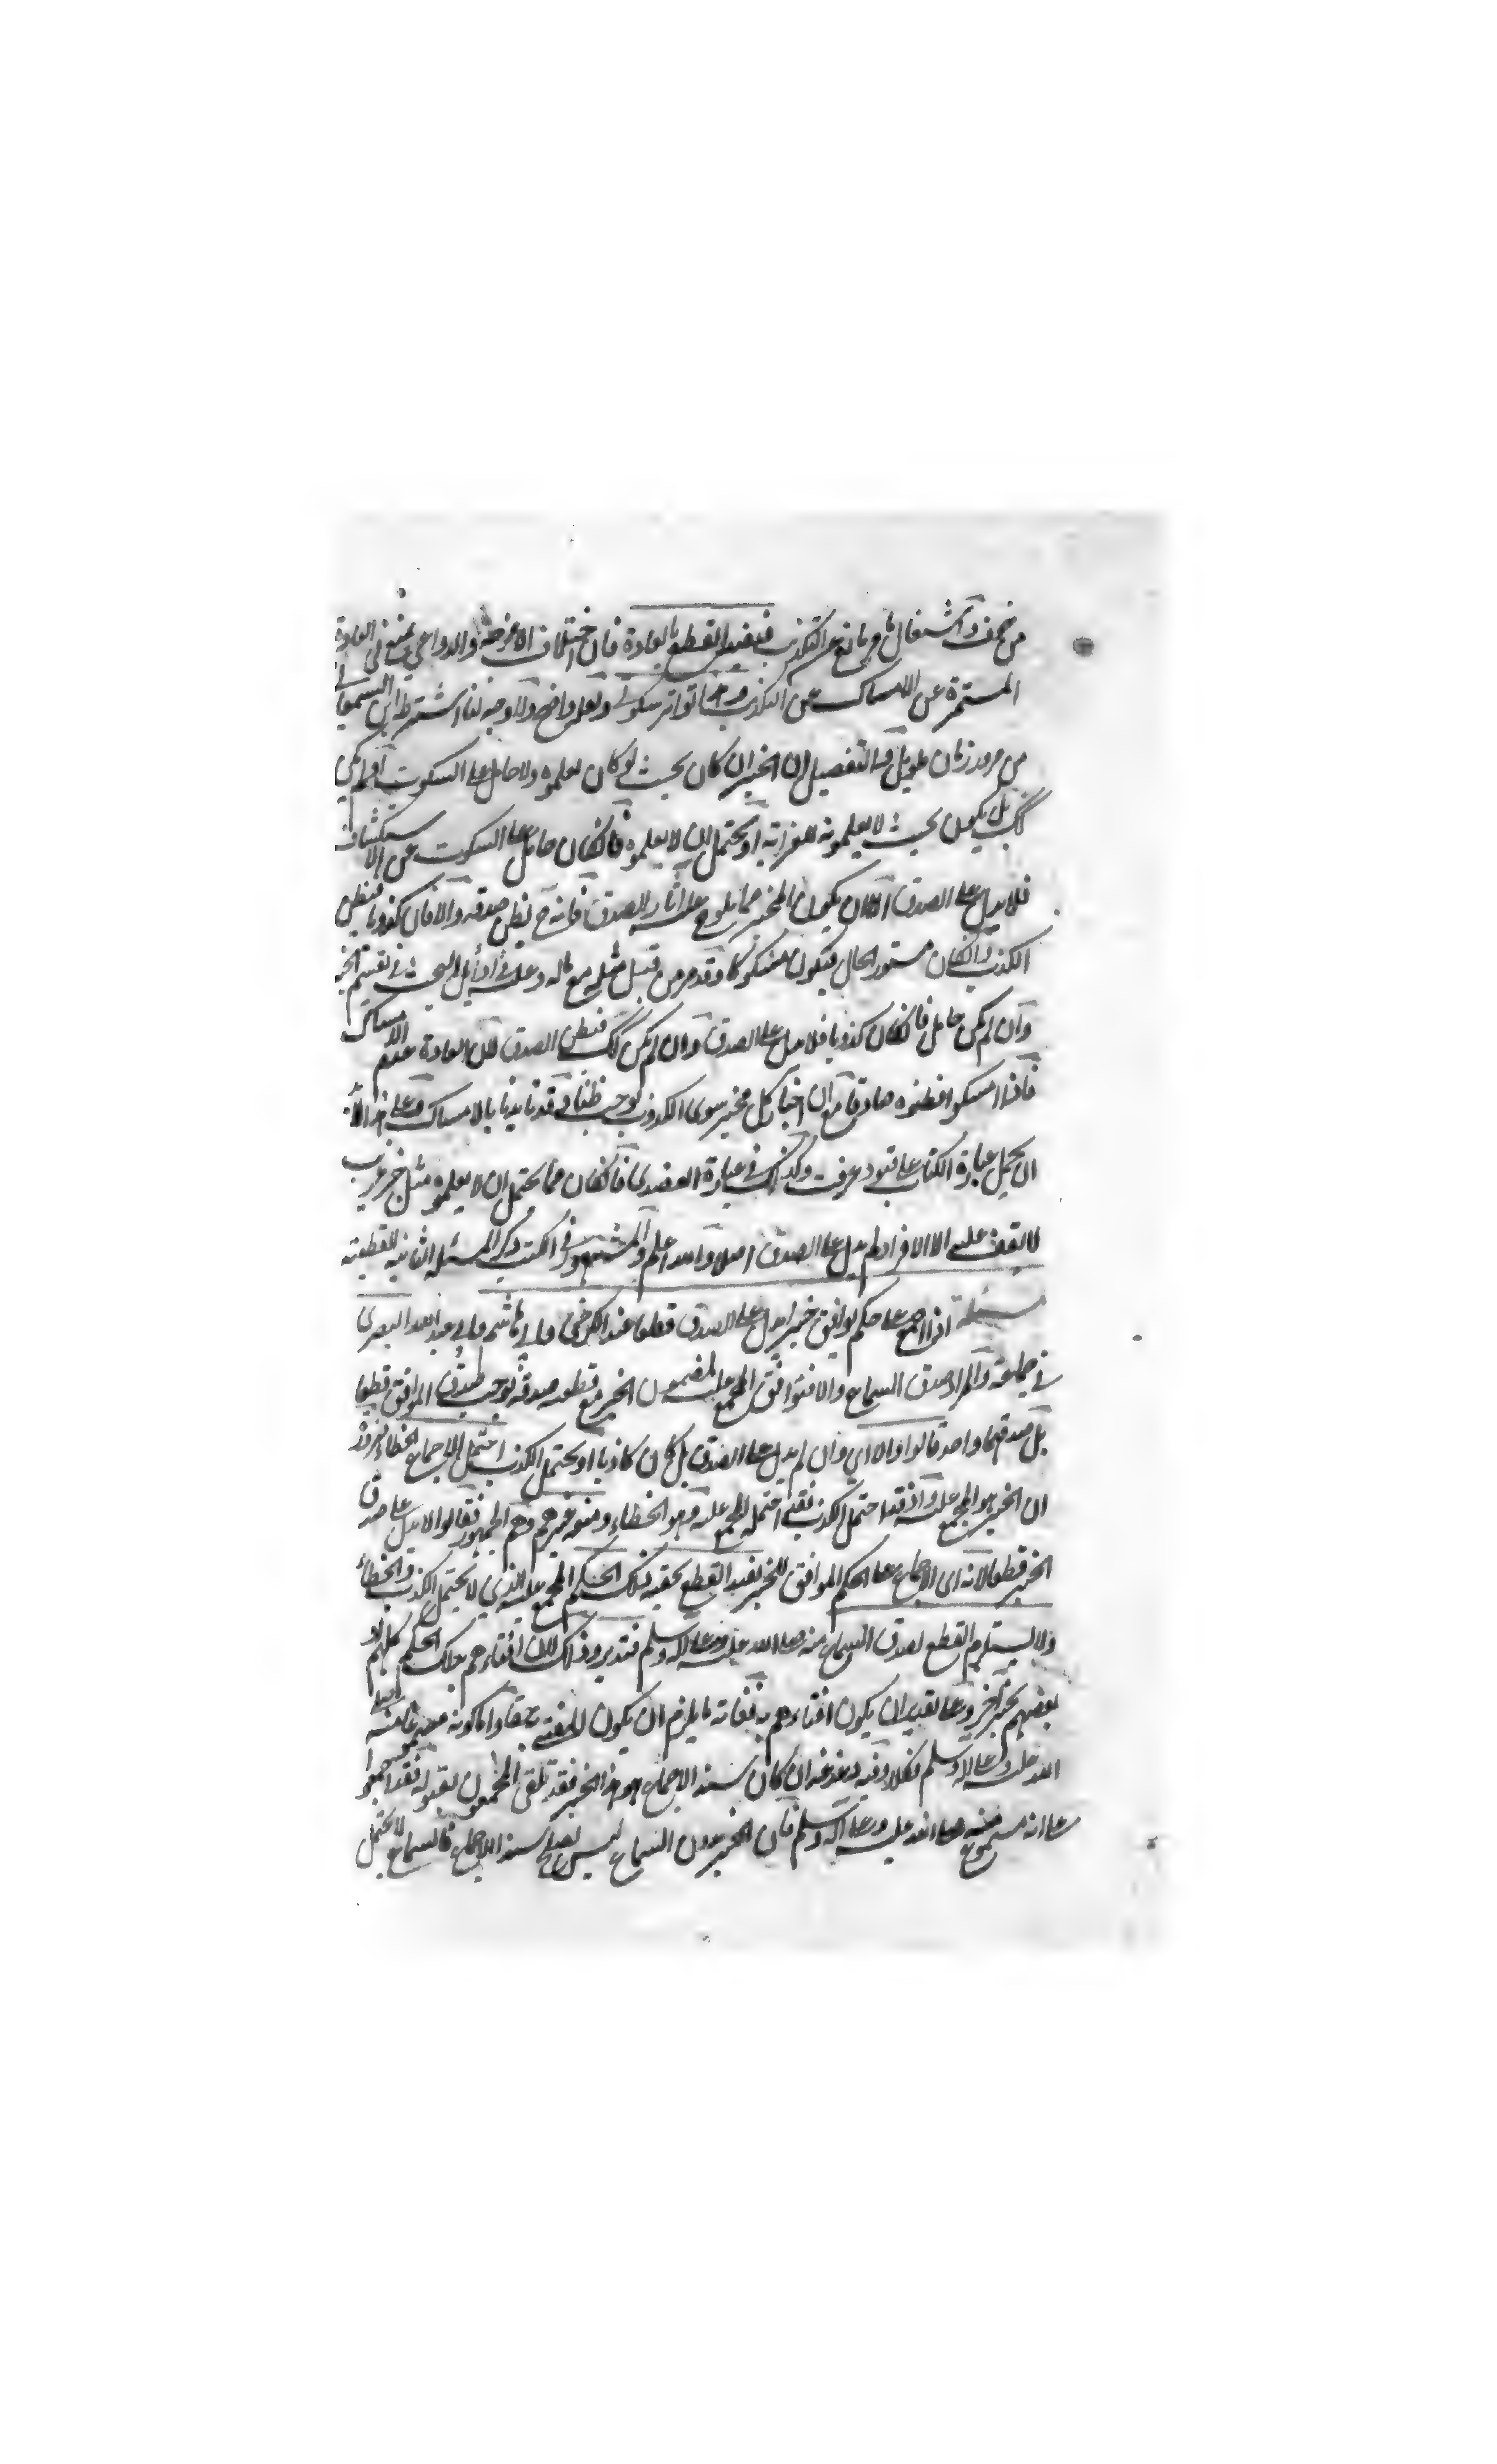 من خوف واشتغال بامر مانع عن التكذيب فيفيد القطع بالعادة فان اختلاف الامزجة والدواعي يمنع في العادة
المستمرة عن الامساك عن التكذيب تواتر سكوتي وتعلم واضح والاوجه لنا اشتراط ابن السمعاني
من مرور زمان طويل والتفصيل ان الخبر ان كان بحيث لو كان لعلموه ولا حامل على السكوت او لم يكن
كك بل يكون بحيث لا يعلمونه لغرابته او يحتمل ان لا يعلموه فان كان حامل على السكوت عن الاستكشاف
فلا يدل على الصدق الا ان يكون المخبر مما يلوح عليه آثار الصدق فانه ح يظن صدقه والا فان كان كذوبا فيظن
الكذب وان كان مستور الحال فيكون مشكوكا وقد مر من قبل مثله مع ماله وعليه في اوائل البحث في تقسيم الخبر
وان لم يكن حامل فان كان كذوبا فلا يدل على الصدق وان لم يكن كك فيظن الصدق لان العادة عدم الامساك
فاذا امسكوا فظنوه صادقا مع ان اخبار كل مخبر سوى الكذوب يوجب ظنا وقد تايد بالامساك وعلى هذا
ان يحمل عبارة الكتاب على قيود عرفت وكذلك في عبارة العضدي فان كان مما يحتمل ان لا يعلموه مثل خبر غريب
لا يقف عليه الا الافراد لم يدل على الصدق اصلا والله اعلم والمشهور في الكتب ذكر المسئلة الثانية القطعية
مسئلة اذا اجمع على حكم يوافق خبرا يدل على الصدق قطعا عند الكرخي وابي هاشم وابي عبد الله البصري
في جماعة والمراد صدق السماع والا فتوافق المجمع عليه لمضمون الخبر مع قطعه صدقه يوجب صدق الموافق قطعا
بل صدقهما واحد قالوا والا اي وان لم يدل على الصدق بل كان كاذبا او يحتمل الكذب احتمل الاجماع الخطاء ضرورة
ان الخبر هو المجمع عليه واذ قد احتمل الكذب فقد احتمله المجمع عليه وهو الخطاء ومنعه غيرهم وهم الجمهور فقالوا لا يدل على صدق
الخبر قطعا لانه اى الاجماع على الحكم الموافق للخبر يفيد القطع بحقية ذلك الحكم المجمع عليه الذي لا يحتمل الكذب والخطاء
ولا يستلزم القطع بصدق السماع منه صلى الله عليه وعلى آله وسلم فتدبر وذلك لان افتاءهم بذلك الحكم كلهم او
بعضهم بخبر آخر وعلى تقدير ان يكون افتاءهم به فغاية ما يلزم ان يكون المفتى به حقا واما كونه مسموعا منه صلى
الله عليه وعلى آله وسلم فكلا وفيه دغدغة ان كان سند الاجماع هو هذا الخبر فقد تلقى المجمعون بقبوله فقد اجمعوا
على انه مسموع منه صلى الله عليه وعلى آله وسلم فان الخبر بدون السماع ليس يصلح سند الاجماع فالسماع لا يحتمل